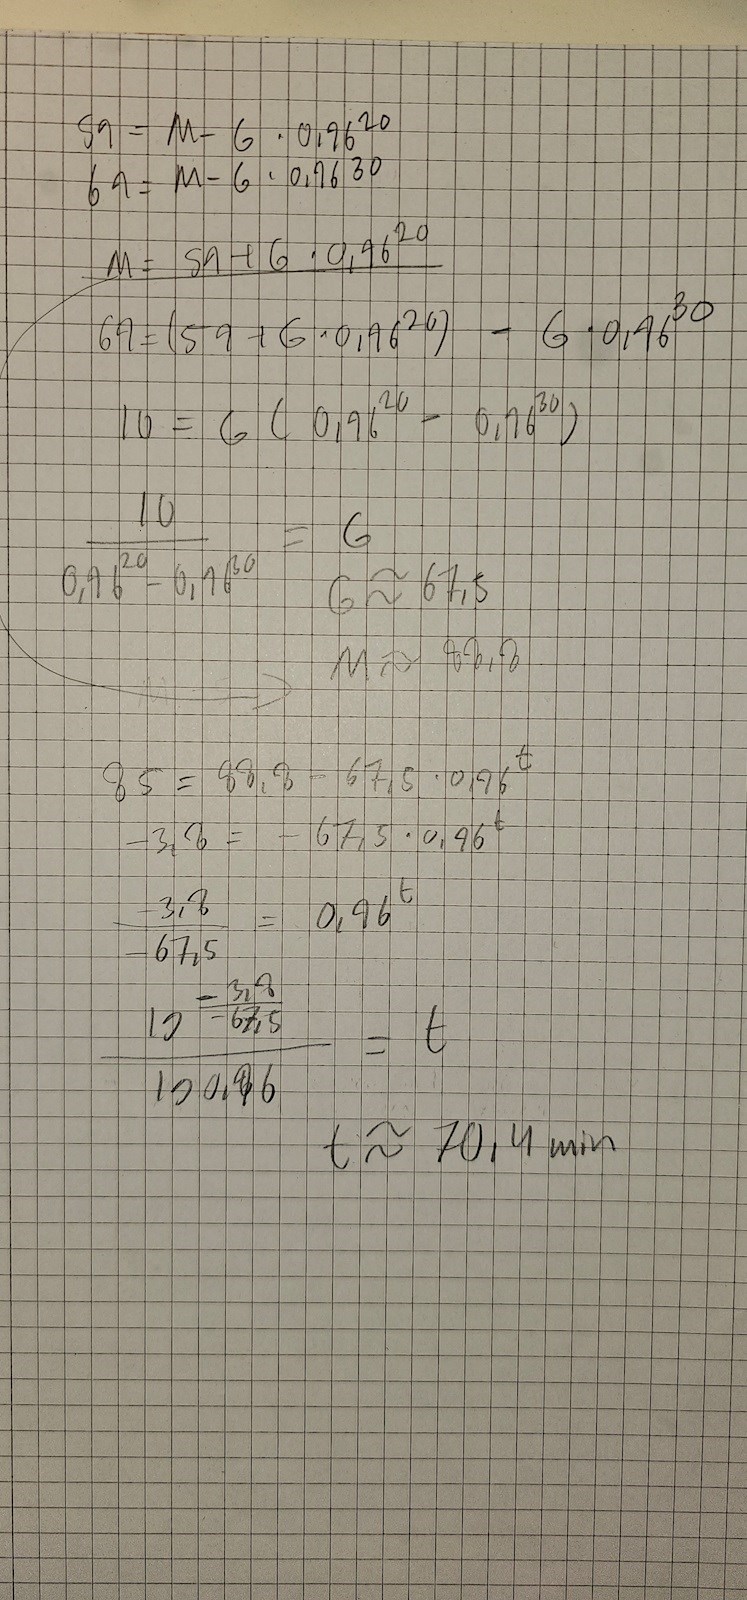 59 = M - G · 0,96^20
69 = M - G · 0,96^30
M = 59 + G · 0,96^20
69 = (59 + G · 0,96^20) - G · 0,96^30
10 = G ( 0,96^20 - 0,96^30 )
10 / (0,96^20 - 0,96^30) = G
G ≈ 67,5
M ≈ 88,8
85 = 88,8 - 67,5 · 0,96^t
-3,8 = - 67,5 · 0,96^t
-3,8 / -67,5 = 0,96^t
lg (-3,8 / -67,5) / lg 0,96 = t
t ≈ 70,4 min